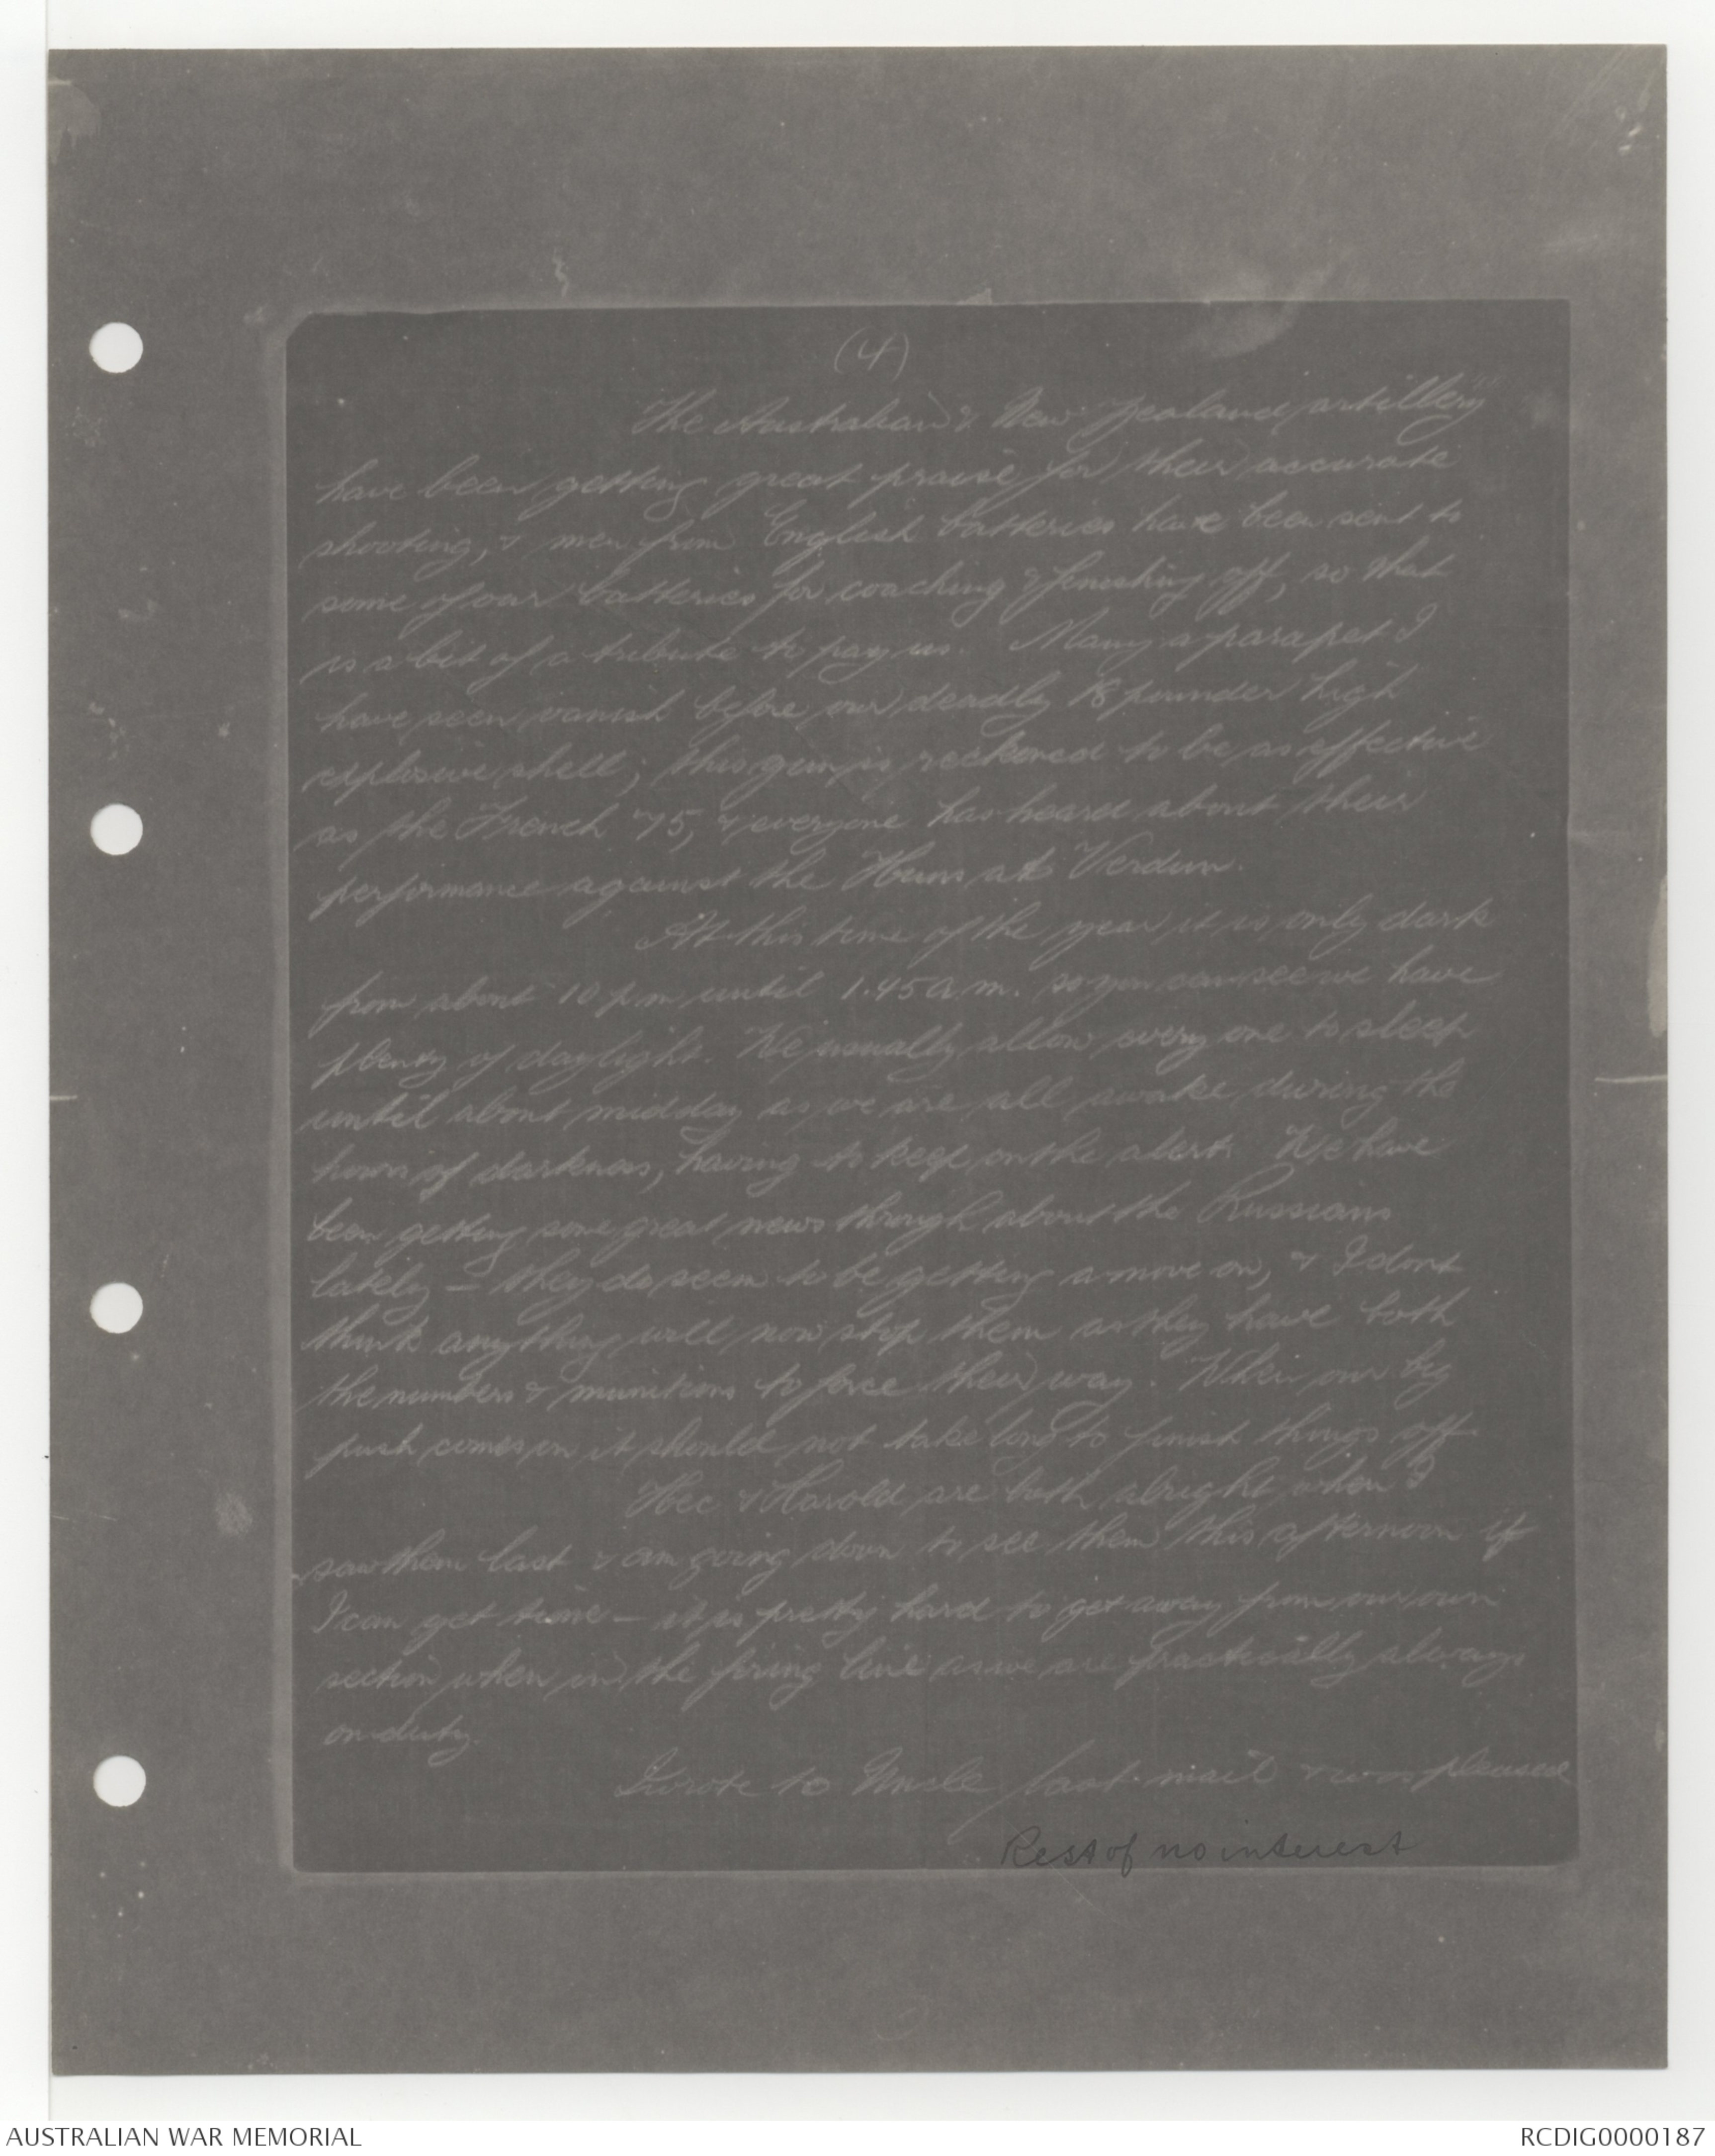 (4)
The Australian & New Zealand artillery
have been getting great praise for their accurate
shooting, & men from English batteries have been sent to
some of our batteries for coaching & finishing off, so that
is a bit of a tribute to pay us. Many a parapet I
have seen vanish before our deadly 18 pounder high
explosive shell; this gun is reckoned to be as effective
as the French 75, & everyone has heard about their
performance against the Huns at Verdun.
At this time of the year it is only dark
from about 10 p.m. until 1.45 a.m. so you can see we have
plenty of daylight. We usually allow every one to sleep
until about midday as we are all awake during the
hours of darkness, having to keep on the alert. We have
been getting some great news through about the Russians
lately – they do seem to be getting a move on, & I dont
think anything will now stop them as they have both
the numbers & munitions to force their way. When our big
push comes on it should not take long to finish things off
Hec & Harold are both alright when I
saw them last & am going down to see them this afternoon if
I can get time – it is pretty hard to get away from our own
section when in the firing line as we are practically always
on duty.
I wrote to Uncle last mail & was pleased
Rest of no interest
AUSTRALIAN WAR MEMORIAL
RCDIG0000187